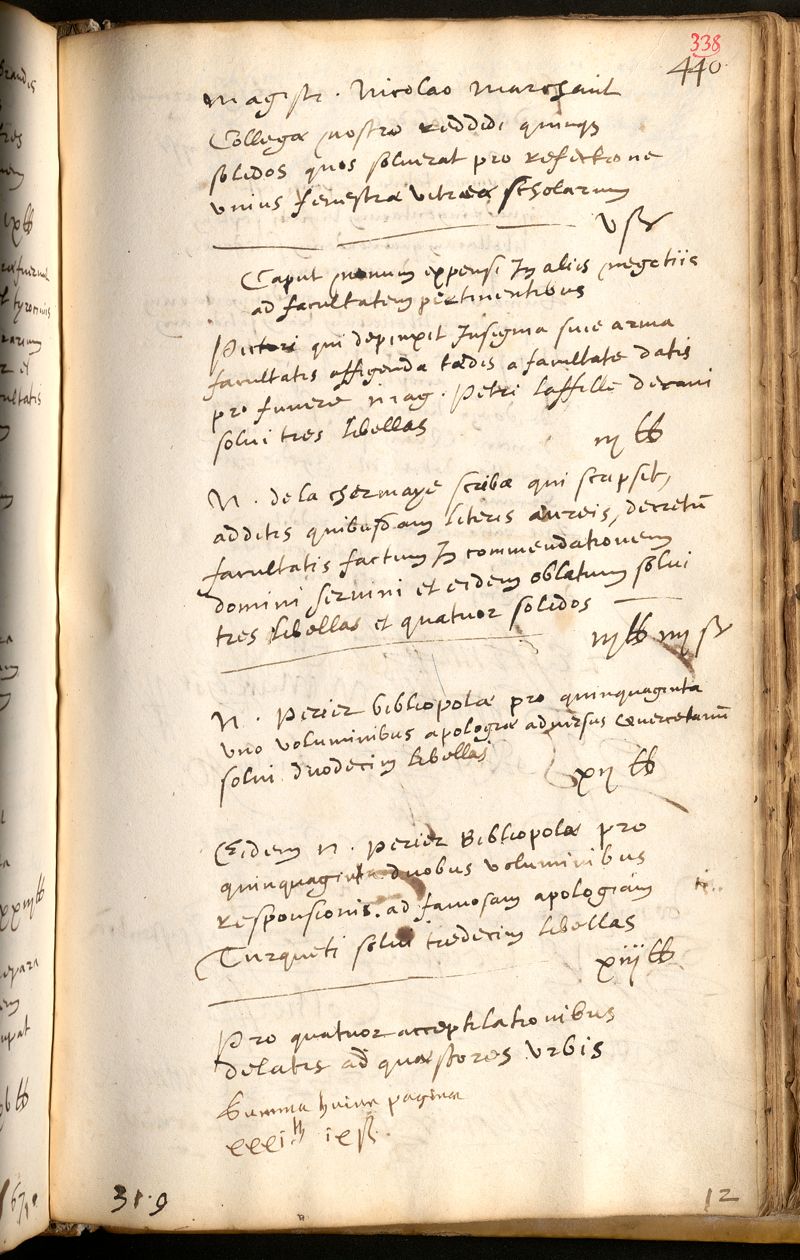 338
440
magistr. Nicolao Marchant
Collegae nostro reddidi quinqz
solidos quos solverat pro refectione
unius fenestrae vitreae scholarum
v ß
Caput nonum expensi In aliis negotiis
ad facultatem pertinentibus
Pictori qui depinxit Insignia sive arma
facultatis affigenda taedis a facultate datis
pro funere mag. Petri laffilé decani
solvi tres libellas
iij ℔
N. de la chermaye scribae qui scripsit,
additis quibusdam literis aureis, decretū
facultatis factum In commendationem
domini servini et eidem oblatum solvi
tres libellas et quatuor solidos
iij ℔ iiij ß
N. Perier bibliopolae pro quinquaginta
uno voluminibus apologiae adversus Quercetanū
solvi duodecim libellas
xij ℔
Eidem N. Perier Bibliopolae pro
quinquaginta duobus voluminibus
responsionis ad famosam apologiam
Turqueti solvi tredecim libellas
xiij ℔
Pro quatuor acceptilationibus
delatis ad quaestores Urbis
Summa huius paginae
xxxi ℔ ix ß.
31·9
12